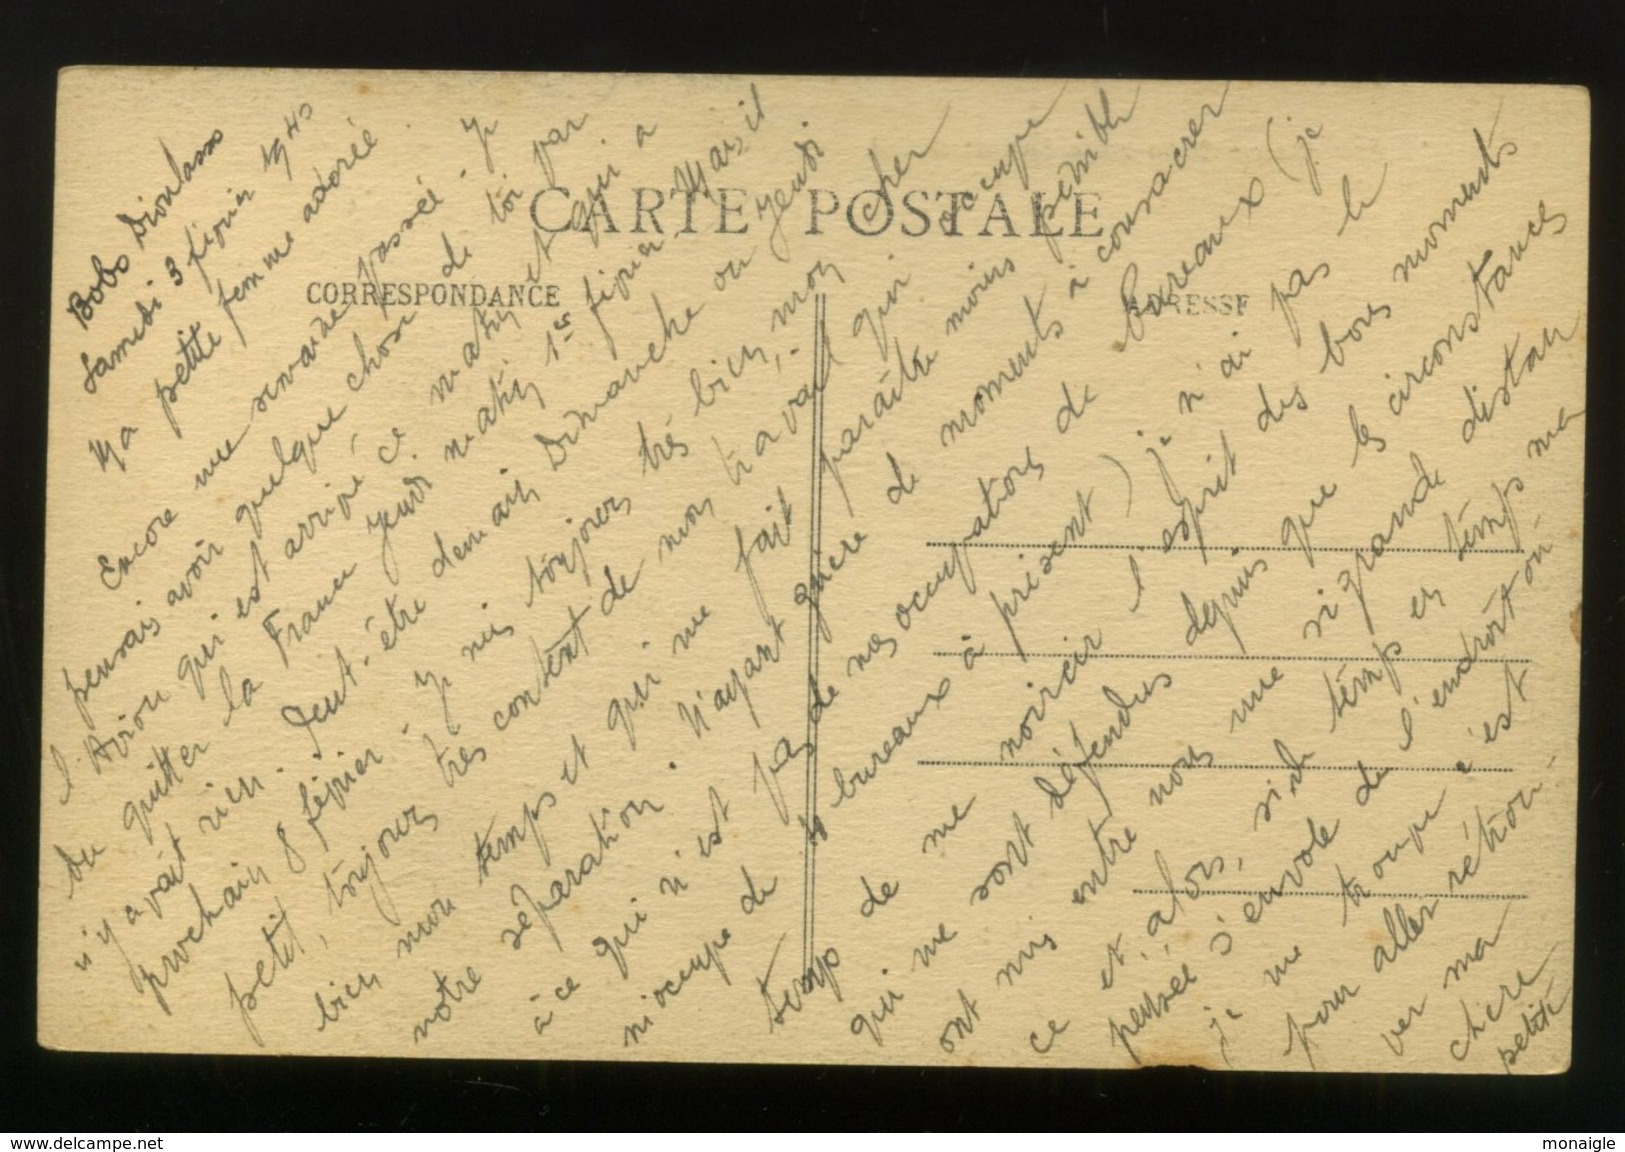 CARTE POSTALE
CORRESPONDANCE
ADRESSE
Bobo Dioulasso
Samedi 3 février 1940
Ma petite femme adorée.
Encore une semaine passée - Je
pensais avoir quelque chose de toi par
l'Avion qui est arrivé ce matin et qui a
du quitter la France jeudi matin 1er février. Mais il
n'y avait rien. Peut-être demain Dimanche ou jeudi
prochain 8 février. - Je vais toujours très bien, mon cher
petit, toujours très content de mon travail qui occupe
bien mon temps et qui me fait paraître moins pénible
notre séparation. N'ayant guère de moments à consacrer
à ce qui n'est pas de nos occupations de bureaux (je
m'occupe de bureaux à présent) je n'ai pas le
temps de me noircir l'esprit des bons moments
qui me sont défendus depuis que les circonstances
ont mis entre nous une si grande distan
ce et, alors, si de temps en temps ma
pensée s'envole de l'endroit où
je me trouve c'est
pour aller retrou-
ver ma
chère
petite
www.delcampe.net
monaigle